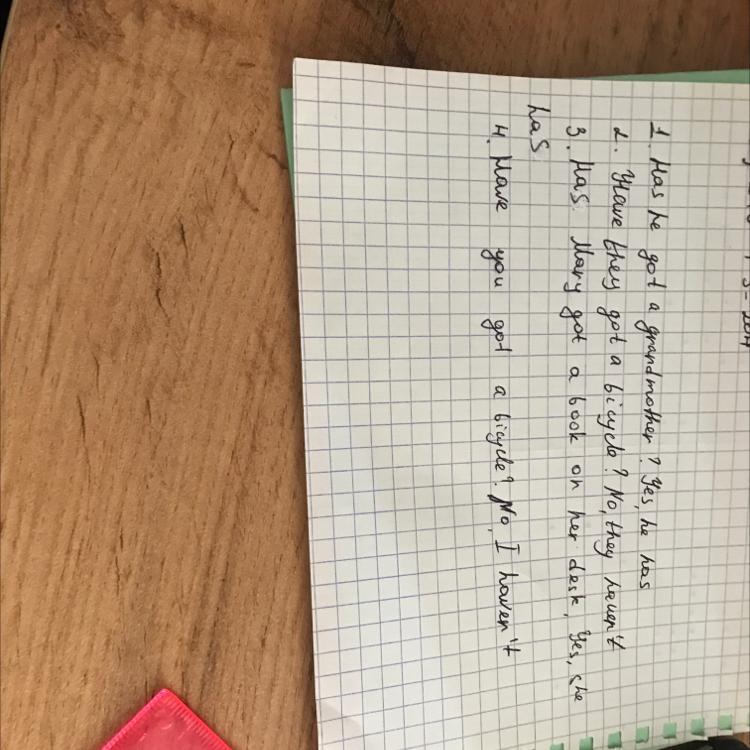 1. Has he got a grandmother? Yes, he has
2. Have they got a bicycle? No, they haven't
3. Has. Mary got a book on her desk, Yes, she
has
4. Have you got a bicycle? No, I haven't